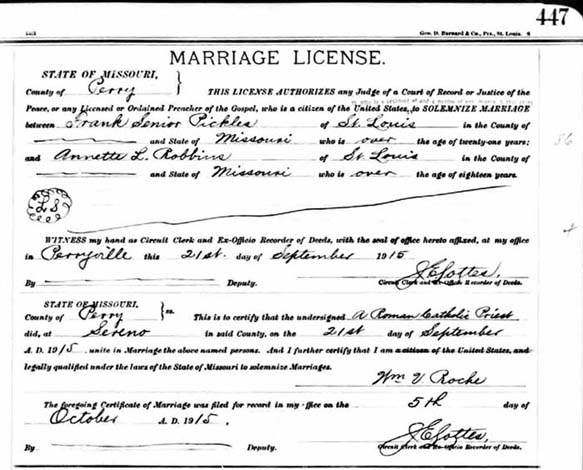 447
Geo. D. Barnard & Co., Prs., St. Louis. 6
MARRIAGE LICENSE.
STATE OF MISSOURI,
County of Perry } THIS LICENSE AUTHORIZES any Judge of a Court of Record or Justice of the
Peace, or any Licensed or Ordained Preacher of the Gospel, who is a citizen of the United States, to SOLEMNIZE MARRIAGE
between Frank Senior Pickles of St. Louis in the County of
and State of Missouri who is over the age of twenty-one years;
and Annette L. Robbins of St. Louis in the County of
and State of Missouri who is over the age of eighteen years.
LS
WITNESS my hand as Circuit Clerk and Ex-Officio Recorder of Deeds, with the seal of office hereto affixed, at my office
in Perryville this 21st. day of September 1915
By Deputy. Circuit Clerk and Ex-Officio Recorder of Deeds.
STATE OF MISSOURI,
County of Perry } ss. This is to certify that the undersigned A Roman Catholic Priest
did, at Sereno in said County, on the 21st day of September
A. D. 1915, unite in Marriage the above named persons. And I further certify that I am a citizen of the United States, and
legally qualified under the laws of the State of Missouri to solemnize Marriages.
Wm V Roche
The foregoing Certificate of Marriage was filed for record in my office on the 5th day of
October A. D. 1915.
By Deputy. Circuit Clerk and Ex-Officio Recorder of Deeds.